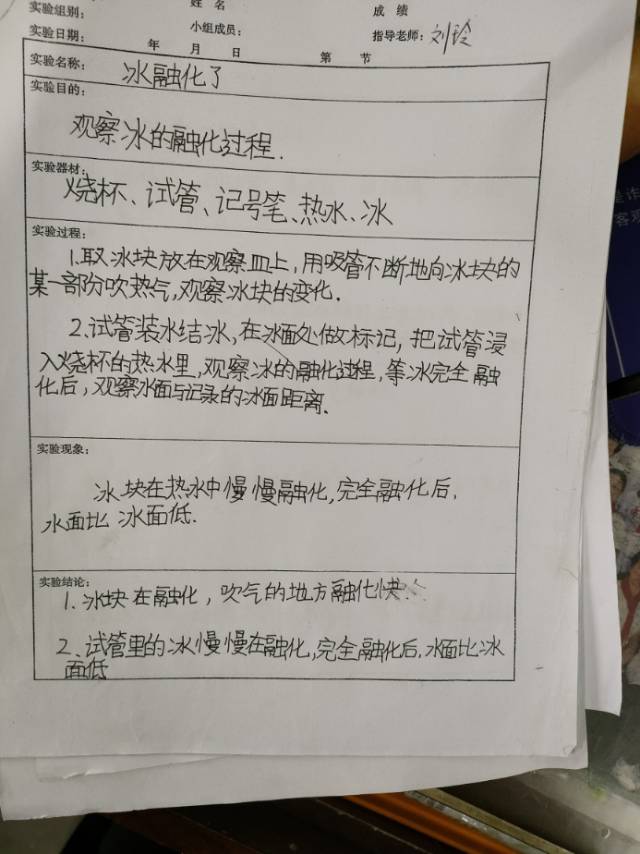 实验组别： 姓 名 成 绩
实验日期： 年 月 日 小组成员： 第 节 指导老师：刘玲
实验名称： 冰融化了
实验目的：
观察冰的融化过程.
实验器材：
烧杯、试管、记号笔、热水、冰
实验过程：
1.取冰块放在观察皿上，用吸管不断地向冰块的
某一部分吹热气,观察冰块的变化.
2.试管装水结冰,在冰面处做标记,把试管浸
入烧杯的热水里,观察冰的融化过程,等冰完全融
化后,观察水面与记录的冰面距离.
实验现象：
冰块在热水中慢慢融化,完全融化后.
水面比冰面低.
实验结论：
1.冰块在融化,吹气的地方融化快.
2.试管里的冰慢慢在融化,完全融化后.水面比冰
面低